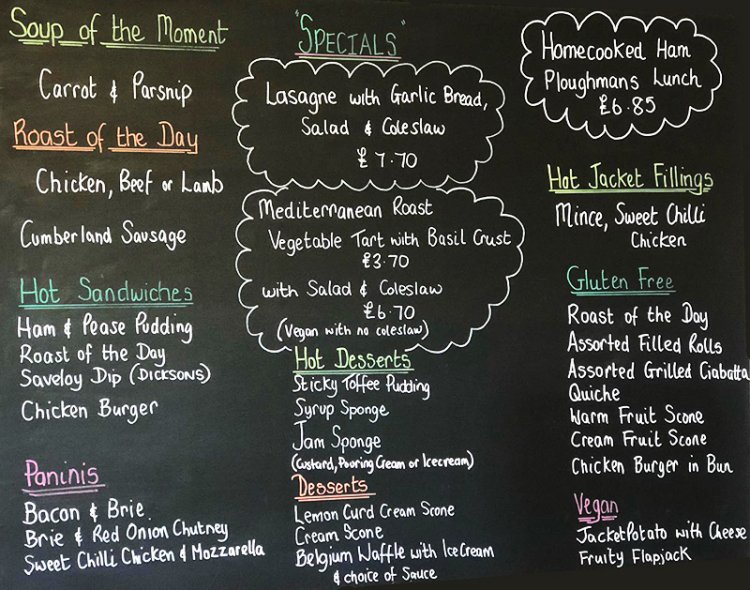 Soup of the Moment
Carrot & Parsnip
Roast of the Day
Chicken, Beef or Lamb
Cumberland Sausage
Hot Sandwiches
Ham & Pease Pudding
Roast of the Day
Saveloy Dip (DICKSONS)
Chicken Burger
Paninis
Bacon & Brie.
Brie & Red Onion Chutney
Sweet Chilli Chicken & Mozzarella
"SPECIALS"
Lasagne with Garlic Bread,
Salad & Coleslaw
£7.70
Mediterranean Roast
Vegetable Tart with Basil Crust
£3.70
with Salad & Coleslaw
£6.70
(Vegan with no coleslaw)
Hot Desserts
Sticky Toffee Pudding
Syrup Sponge
Jam Sponge
(Custard, Pouring Cream or Icecream)
Desserts
Lemon Curd Cream Scone
Cream Scone
Belgium Waffle with Ice Cream
& choice of Sauce
Homecooked Ham
Ploughmans Lunch
£6.85
Hot Jacket Fillings
Mince, Sweet Chilli
Chicken
Gluten Free
Roast of the Day
Assorted Filled Rolls
Assorted Grilled Ciabatta
Quiche
Warm Fruit Scone
Cream Fruit Scone
Chicken Burger in Bun
Vegan
Jacket Potato with Cheese
Fruity Flapjack